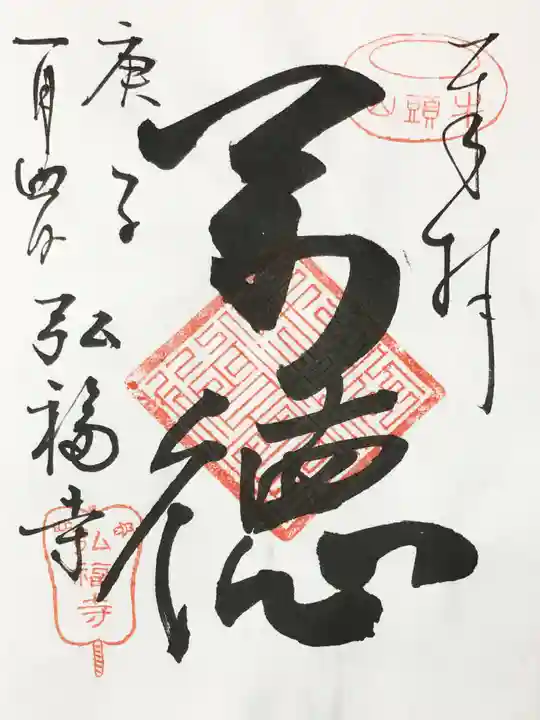 奉拝
牛頭山
萬徳
庚子
一月四日
弘福寺
弘福寺